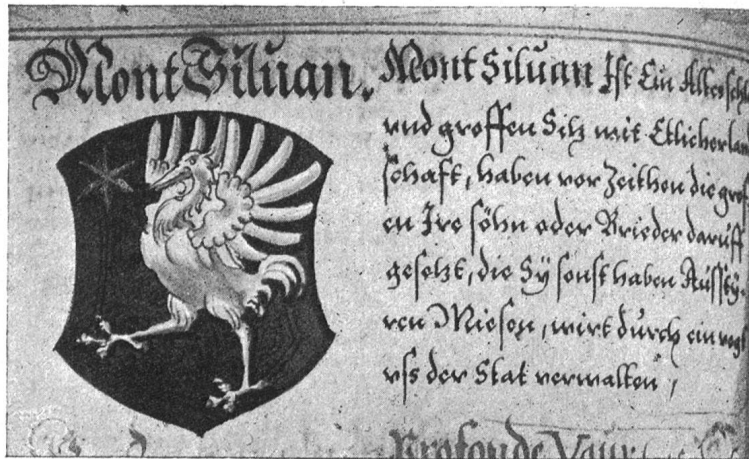 Mont Siluan.
Mont Siluan Ist Ein Alter schl
vnd grossen Sitz mit Etlicher lan
schaft, haben vor Zeithen die graf
en Ire söhn oder Brieder daruff
gesetzt, die Sÿ sonst haben Ausstÿ
ren Miesen, wirt durch ein vogt
vss der Stat verwalten,
Profonde Vaux